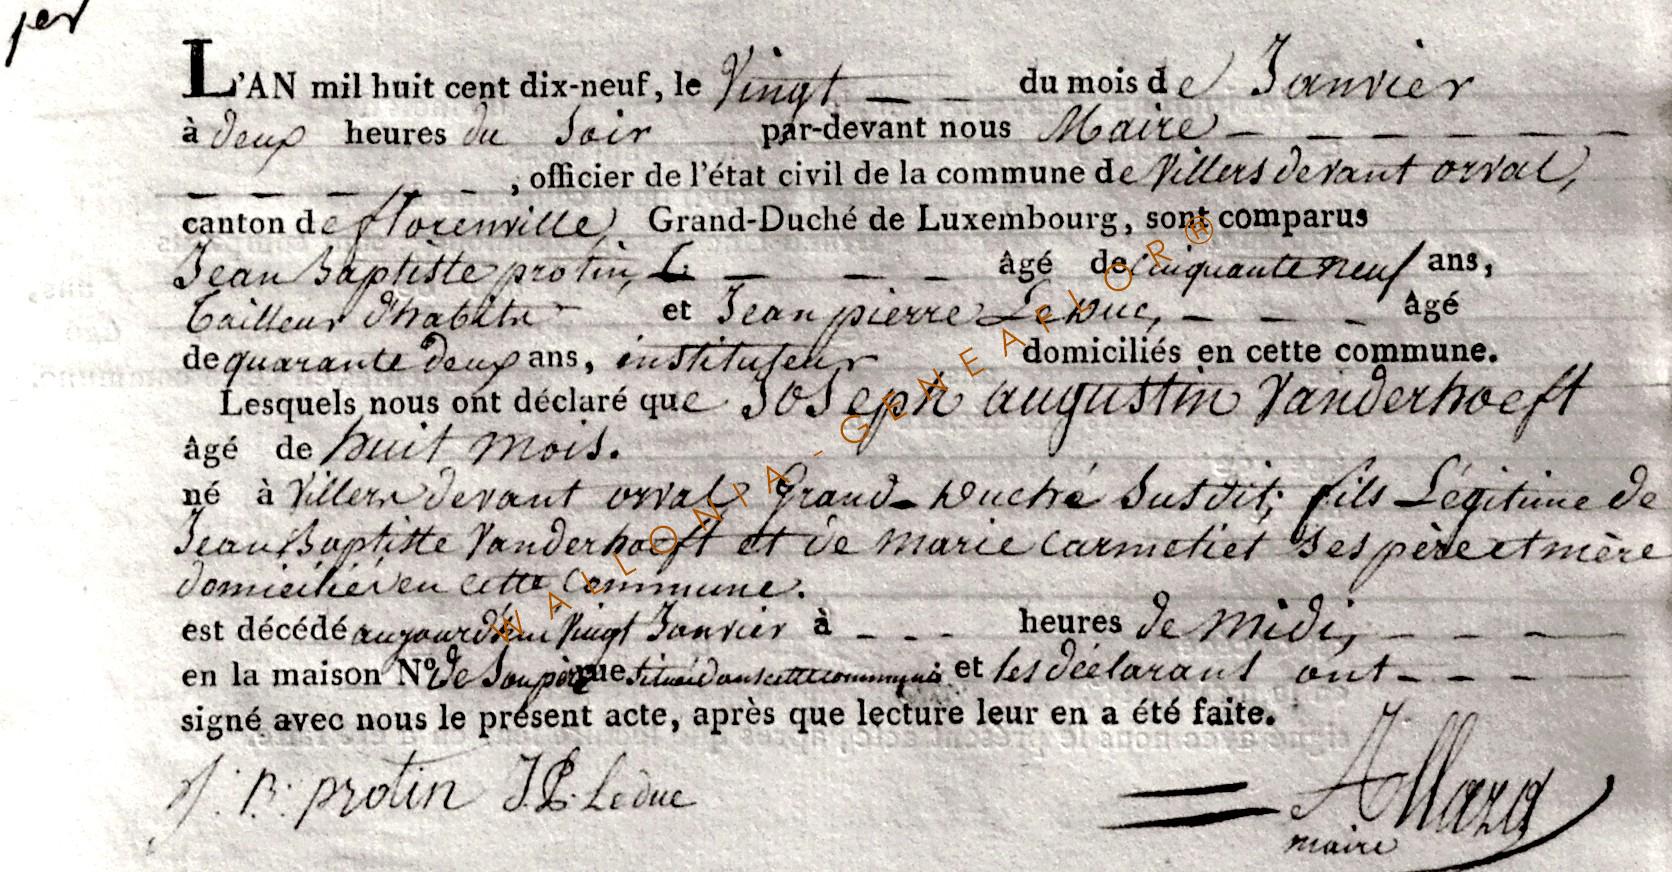 per
L'AN mil huit cent dix-neuf, le Vingt — — du mois de Janvier
à deux heures du Soir par-devant nous Maire — — — — — —
— — — — — , officier de l'état civil de la commune de Villers devant orval,
canton de florenville, Grand-Duché de Luxembourg, sont comparus
Jean Baptiste protin, — — — âgé de Cinquante neuf ans,
Tailleur d'habits — et Jean pierre Leduc, — — — âgé
de quarante deux ans, instituteur domiciliés en cette commune.
Lesquels nous ont déclaré que Joseph augustin Vanderhoeft
âgé de huit mois.
né à Villers devant orval Grand-Duché Susdit; fils Légitime de
Jean Baptiste Vanderhoeft et de marie carmetiet Ses père et mère
domicilié en cette Commune.
est décédé aujourd'hui Vingt Janvier à — — — heures de midi, — — — —
en la maison N° de Son père rue située dans cette commune et les déclarans ont — — — —
signé avec nous le présent acte, après que lecture leur en a été faite.
J. B. protin J.P. Leduc
maire
WALLONIA-GENEAFLOR®